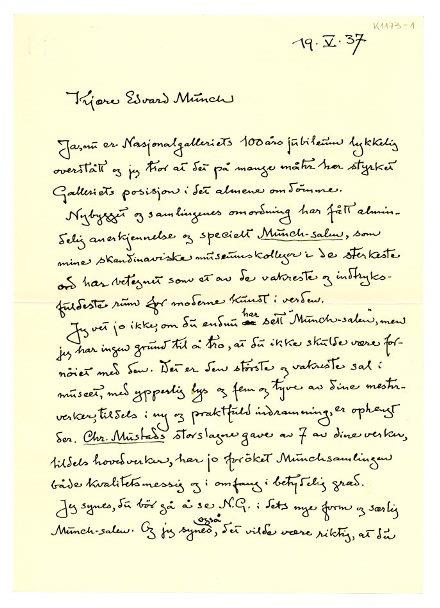 K1173-1
19.V.37
Kjære Edvard Munch
Ja, nu er Nasjonalgalleriets 100 års jubileum lykkelig
overstått og jeg tror at det på mange måter har styrket
Galleriets posisjon i det almene omdømme.
Nybygget og samlingenes omordning har fått almin-
delig anerkjennelse og specielt Munch-salen, som
mine skandinaviske museumskolleger i de sterkeste
ord har betegnet som et av de vakreste og indtryks-
fuldeste rum for moderne kunst i verden.
Jeg vet jo ikke om du endnu har sett "Munch-salen", men
jeg har ingen grund til å tro, at du ikke skulde være for-
nøiet med den. Det er den største og vakreste sal i
museet, med ypperlig lys og fem og tyve av dine mester-
verker, tildels i ny og praktfuld indramning, er ophengt
der. Chr. Mustads storslagne gave av 7 av dine verker,
tildels hovedverker, har jo forøket Munchsamlingen
både kvalitetsmessig og i omfang i betydelig grad.
Jeg synes, du bør gå å se N.G. i dets nye form og særlig
Munch-salen. Og jeg synes også, det vilde være riktig, at du